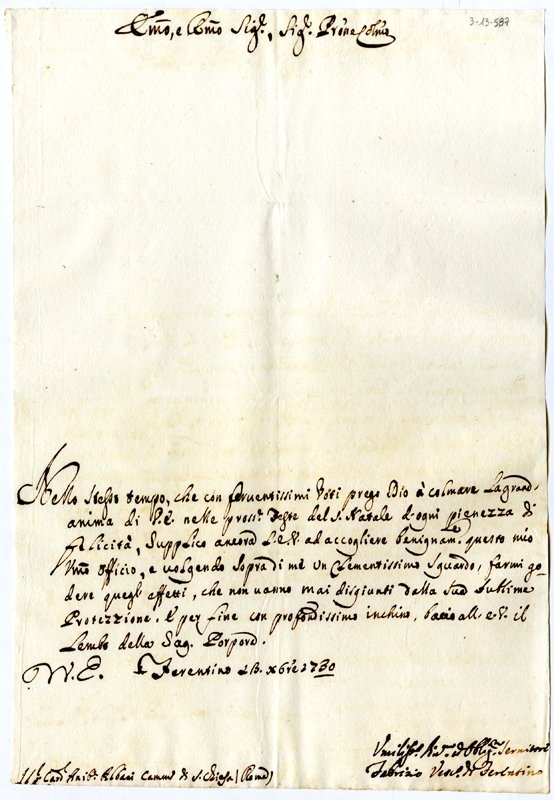 3-13-587
Emo, e Rmo Sigr., Sigr. Prone Colmo
Nello stesso tempo, che con feruentissimi Voti prego Idio à colmare la grand,
anima di V.E. nelle prossе. Feste del S. Natale d'ogni pienezza di
felicità, Supplico ancora l'E.V. ad accogliere benignamte. questo mio
Umo officio, e volgendo sopra di mè un Clementissimo Sguardo, farmi go-
dere quegl'effetti, che non vanno mai disgiunti dalla sua sublime
Protezzione. E per fine con profondissimo inchino, bacio all'E.V. il
Lembo della Sag. Porpora.
V.E. Ferentino 13. Xbre 1730
Umiliss. Div. ed Obblg. Servitore
Fabrizio Vesc. di Ferentino
Card. Anib. Albani Camer. di S. Chiesa (Roma)